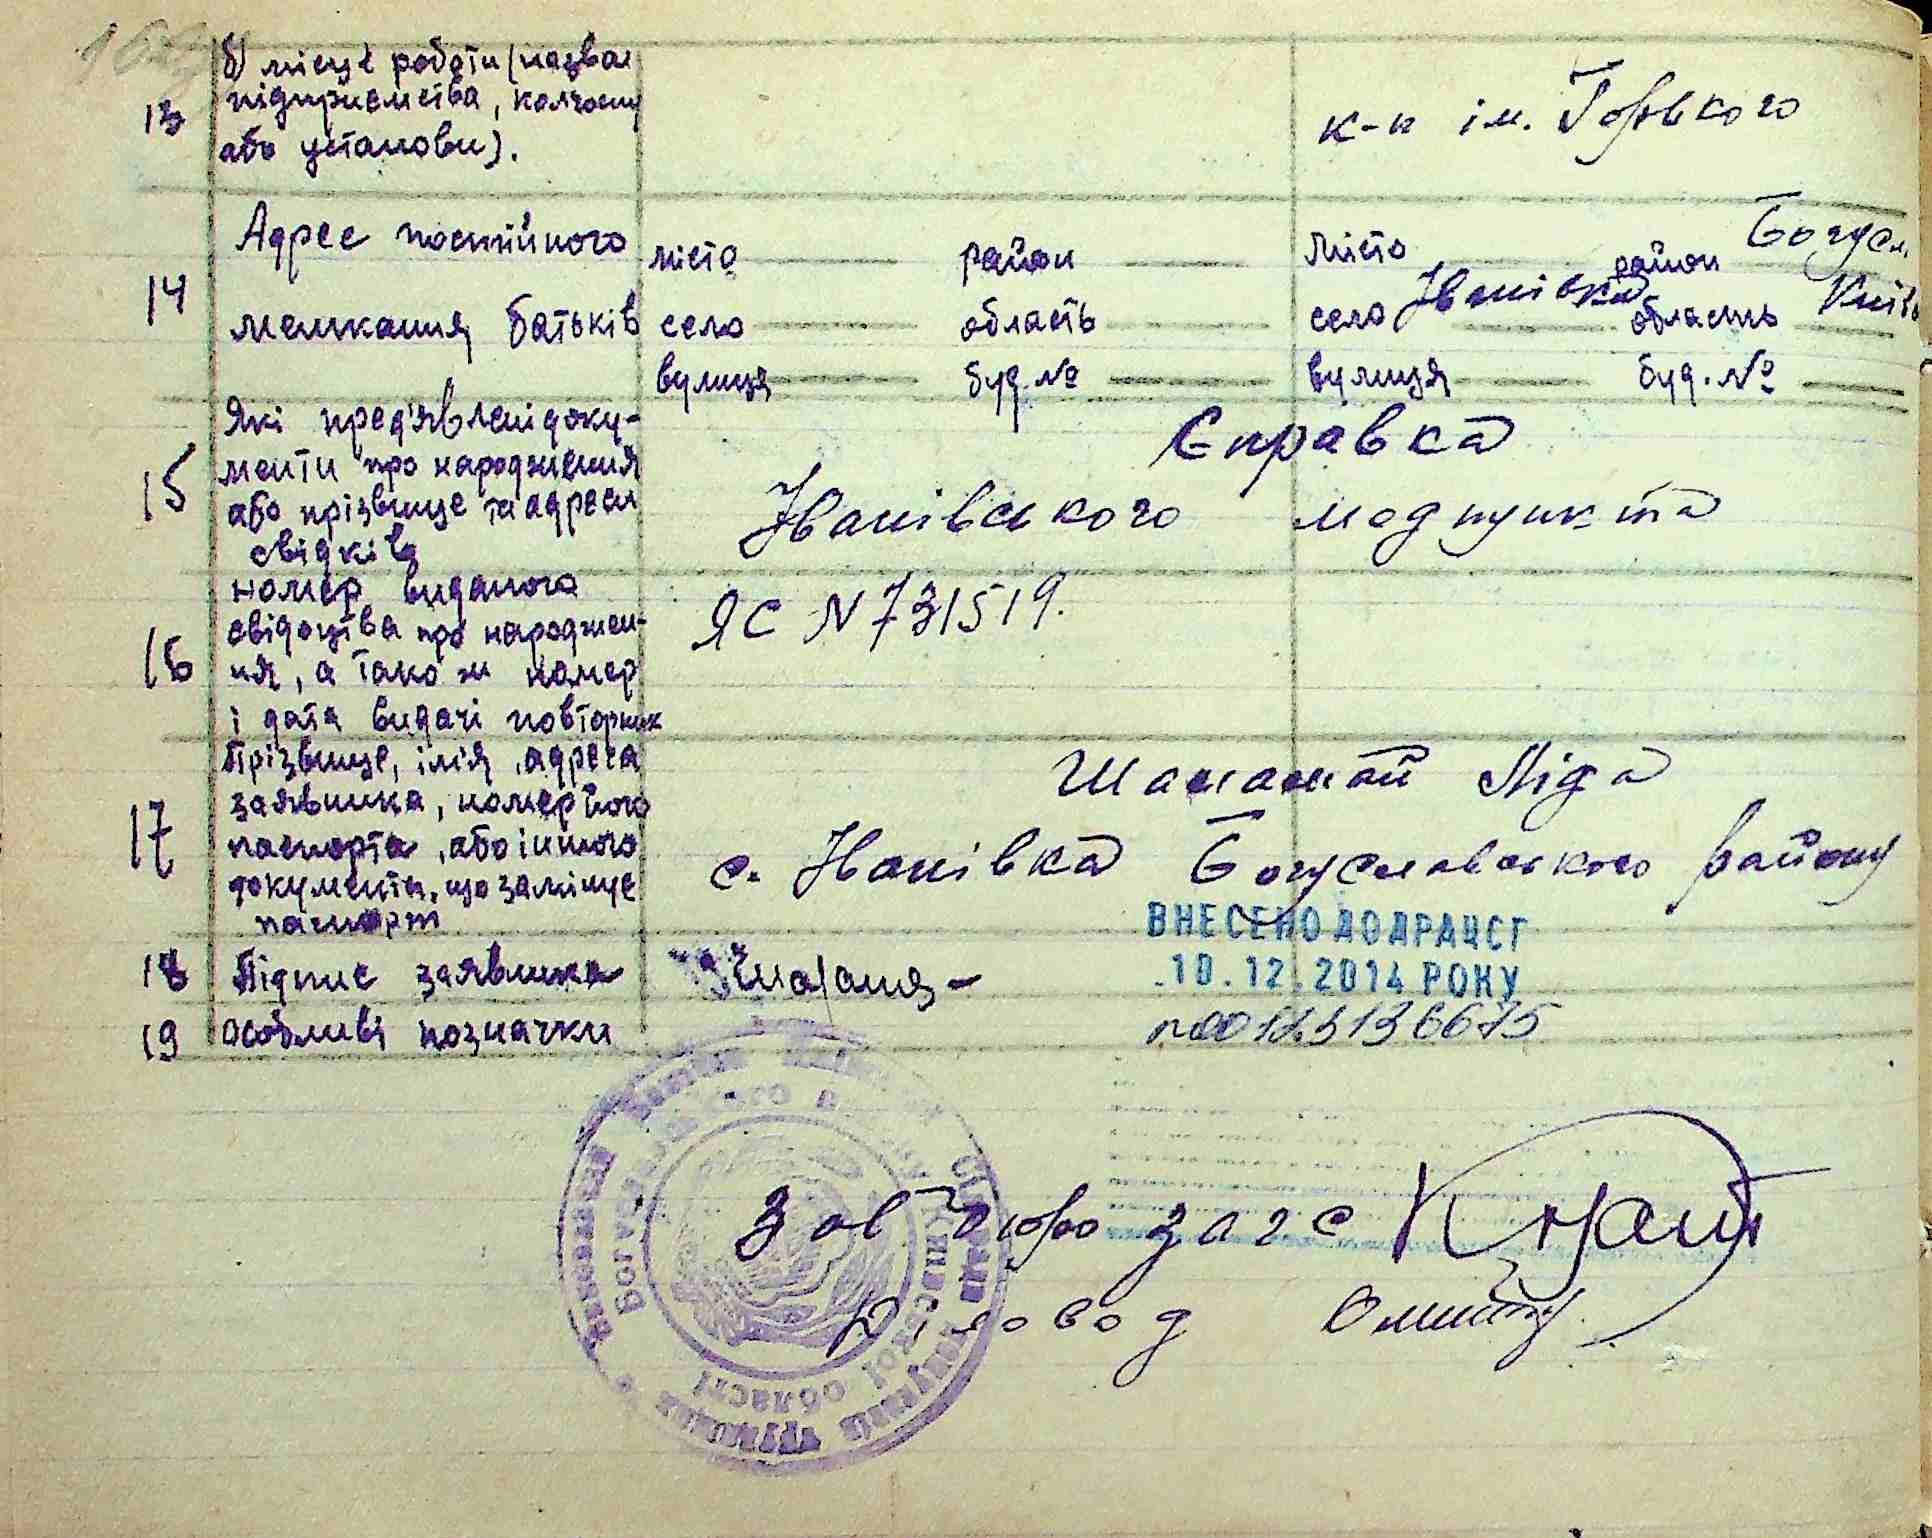 13
б) місце роботи (назва
підприємства, колгоспу
або установи).
к-п ім. Горького
14
Адрес постійного
мешкання батьків
місто район місто район Богусл.
село область село Іванівка область Київ
вулиця буд. № вулиця буд. №
15
Які пред'явлені доку-
менти про народження
або прізвище та адреси
свідків
Справка
Іванівського медпункта
16
номер виданого
свідоцтва про народжен-
ня, а також номер
і дата видачі повторних
ЯС N 731519.
17
Прізвище, ім'я, адреса
заявника, номер його
паспорта, або іншого
документа, що замінює
паспорт
Ліда
с. Іванівка Богуславського району
ВНЕСЕНО ДО ДРАЦСГ
10.12.2014 РОКУ
18 Підпис заявника
19 Особливі позначки
Зав бюро загс
Діловод
Київської області